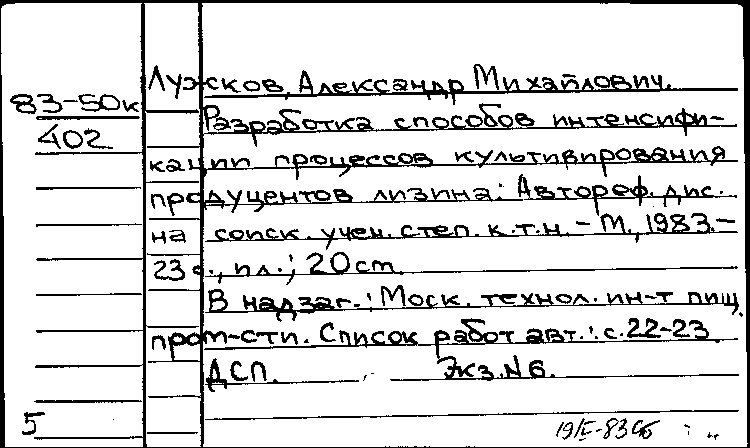 Лужков, Александр Михайлович.
83-50к
402
Разработка способов интенсифи-
кации процессов культивирования
продуцентов лизина: Автореф. дис.
на соиск. учен. степ. к.т.н. - М., 1983.-
23 с., ил.; 20 см.
В надзаг.: Моск. технол. ин-т пищ.
пром-сти. Список работ авт.: с.22-23.
ДСП. Экз. № 6.
5